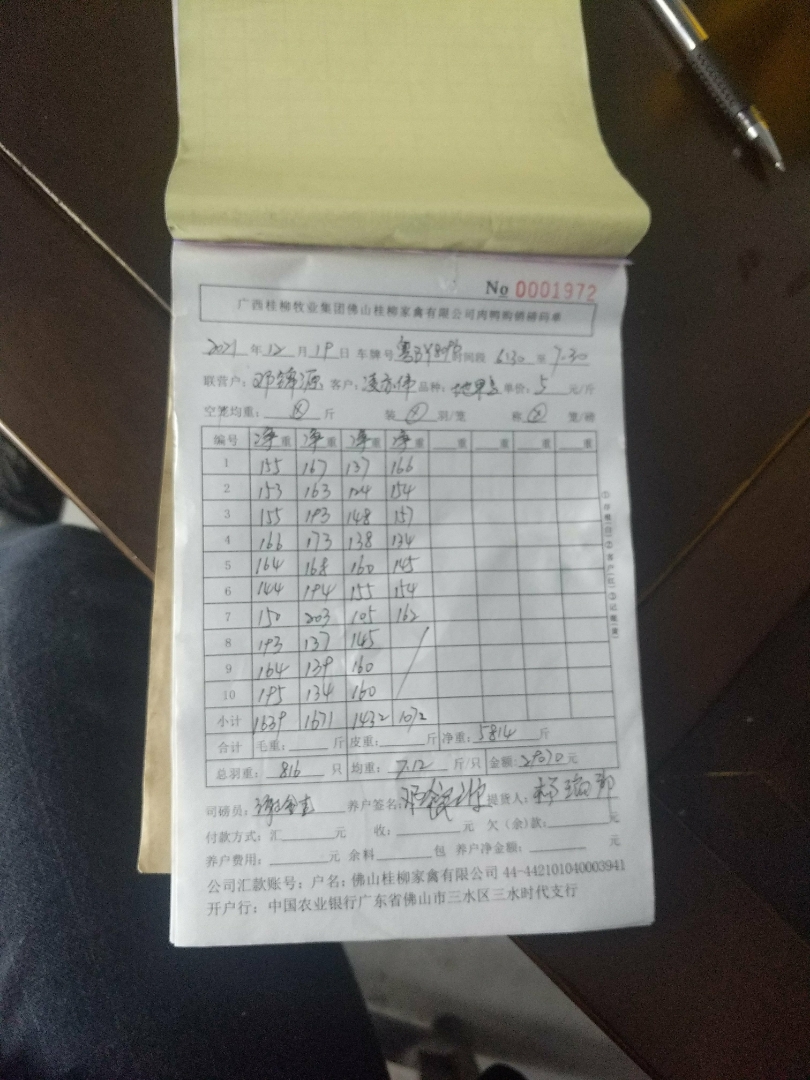 No 0001972
广西桂柳牧业集团佛山桂柳家禽有限公司肉鸭购销磅码单
2021 年 12 月 19 日 车牌号 时间段 6:30 至 7.30
联营户: 邓锦源 客户: 凌亦伟 品种: 单价: 5 元/斤
空笼均重: 斤 装 羽/笼 称 笼/磅
编号 净重 净重 净重 净重 重 重 重 重
1 155 167 137 166
2 153 163 124 154
3 155 193 148 157
4 166 173 138 134
5 164 168 160 145
6 144 194 155 154
7 150 203 105 162
8 193 137 145
9 164 139 160
10 195 134 160
小计 1639 1671 1432 1072
合计 毛重: 斤 皮重: 斤 净重: 5814 斤
总羽重: 816 只 均重: 7.12 斤/只 金额: 29070 元
司磅员: 养户签名: 提货人:
付款方式: 汇 元 收: 元 欠(余)款: 元
养户费用: 元 余料 包 养户净金额: 元
公司汇款账号: 户名: 佛山桂柳家禽有限公司 44-442101040003941
开户行: 中国农业银行广东省佛山市三水区三水时代支行